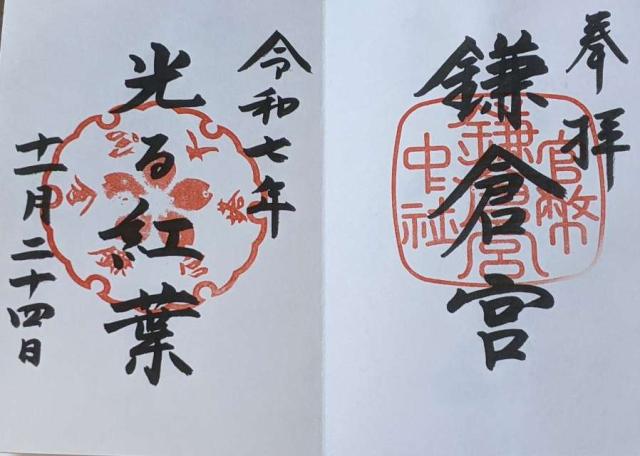 奉拝
鎌倉宮
官幣
鎌倉宮
中社
令和七年
光る紅葉
十一月二十四日